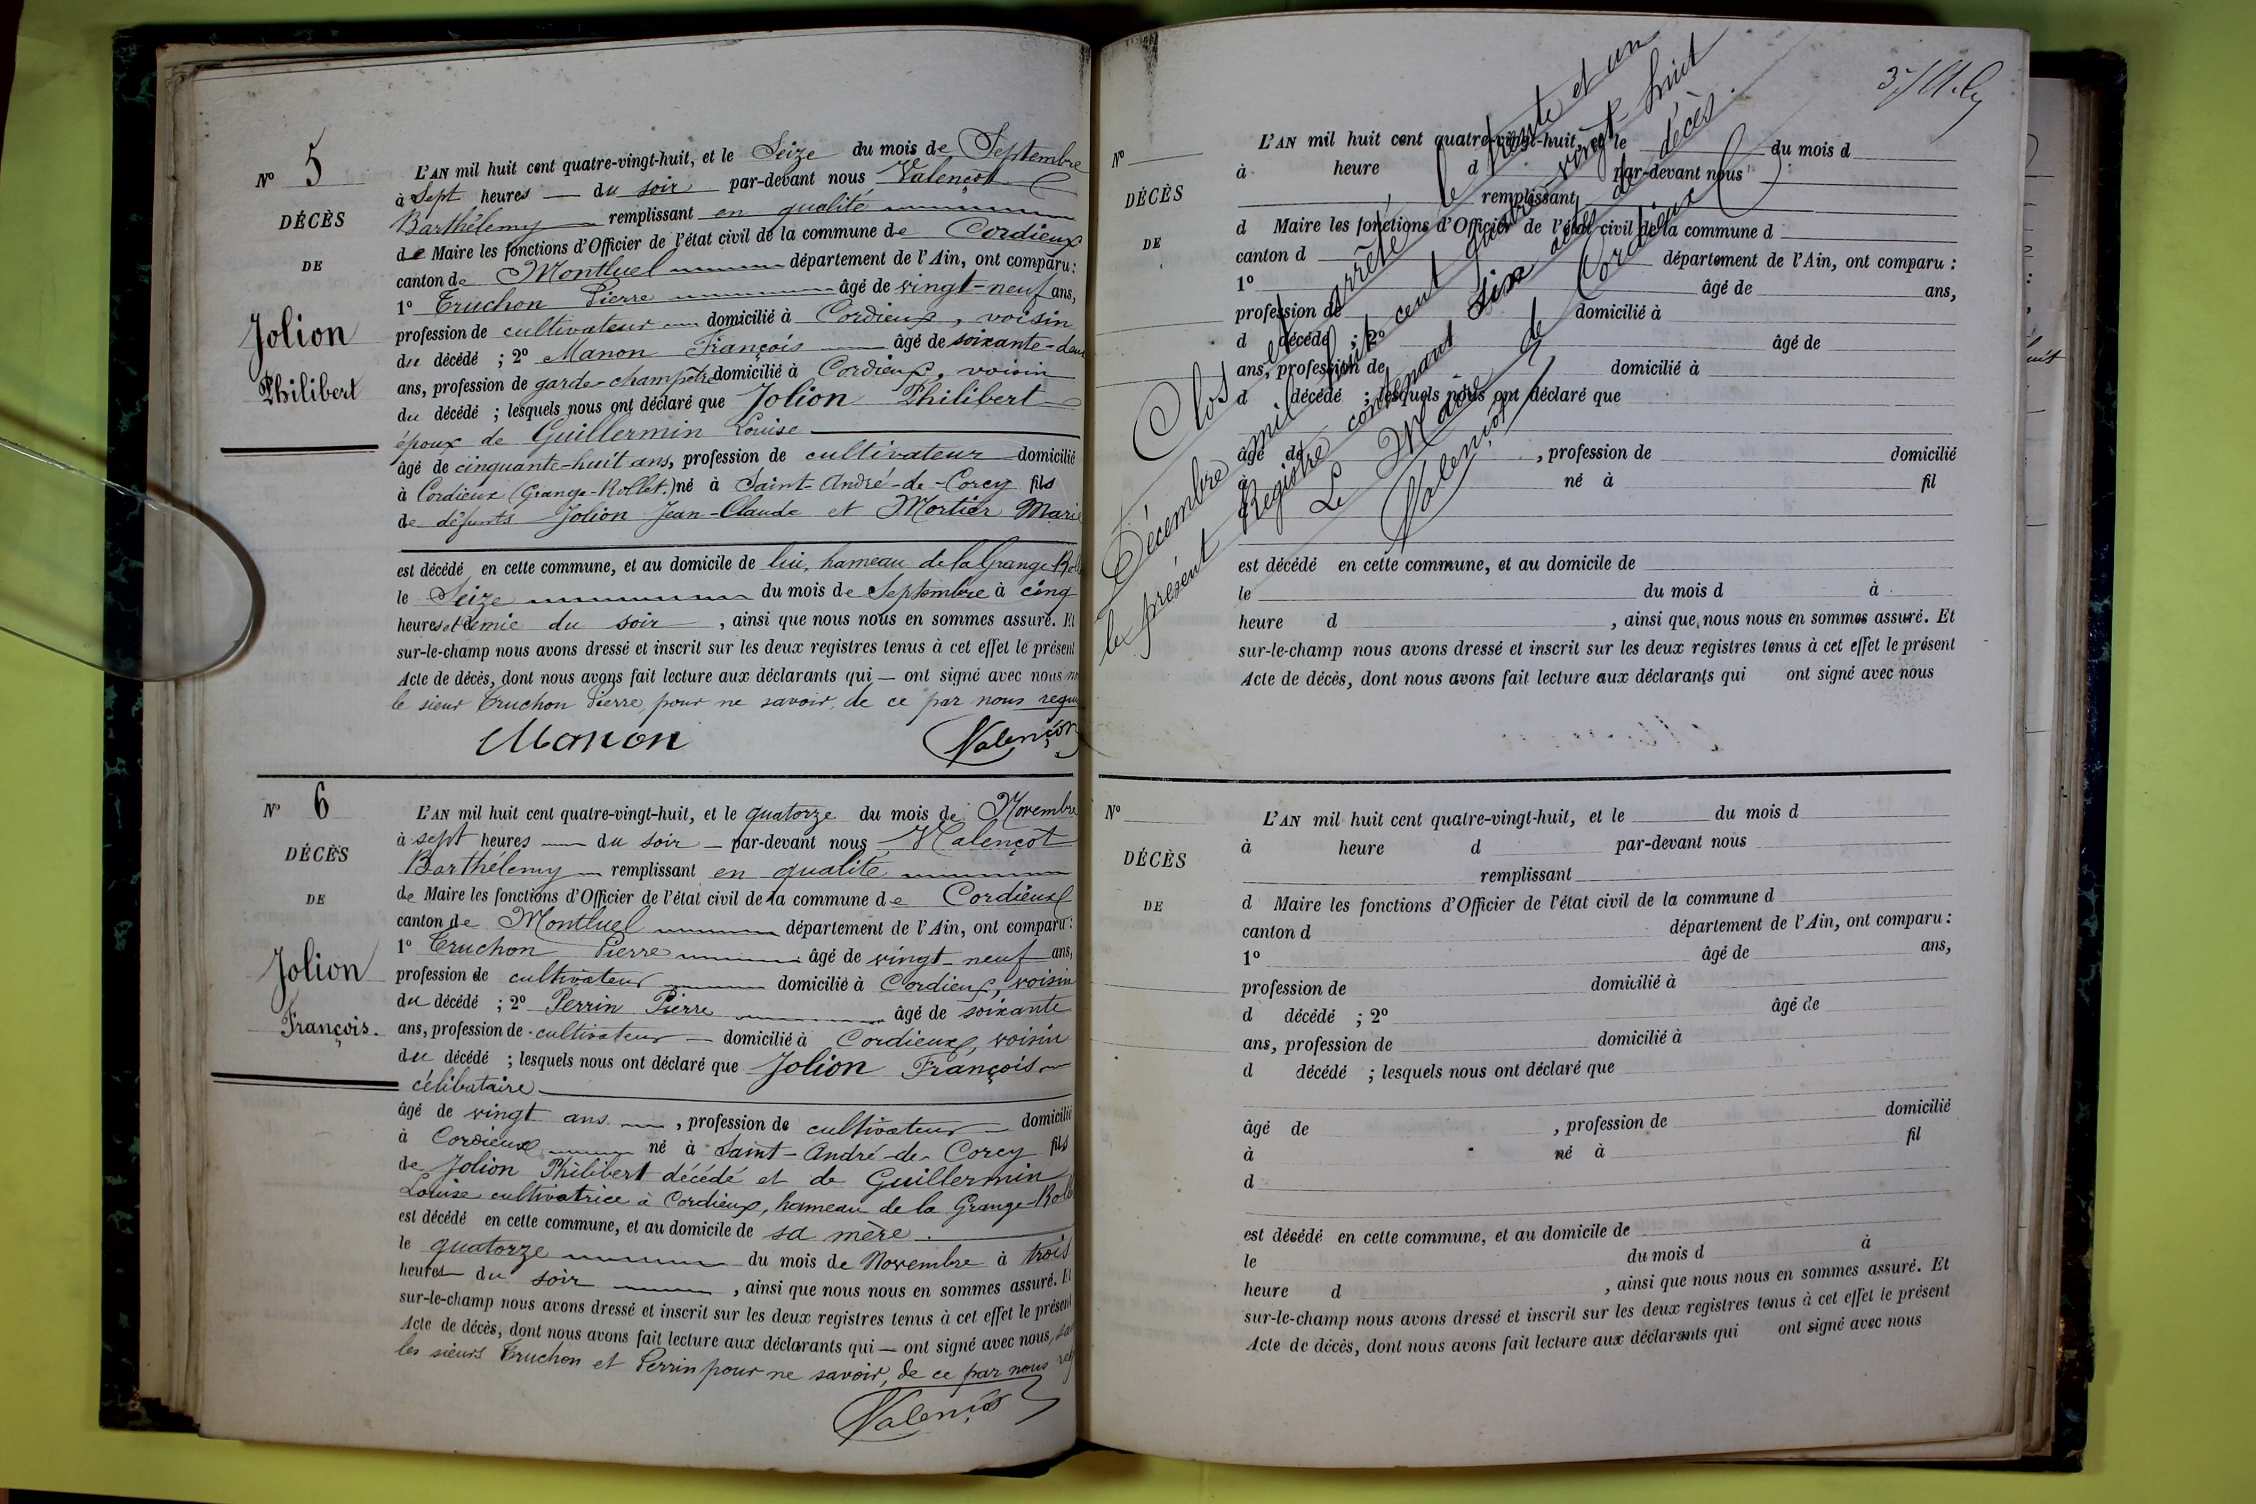 N° 5
DÉCÈS
DE
Jolion
Philibert
L'AN mil huit cent quatre-vingt-huit, et le Seize du mois de Septembre
à Sept heures du soir par-devant nous Valençot
Barthélemy remplissant en qualité
de Maire les fonctions d'Officier de l'état civil de la commune de Cordieux
canton de Montluel département de l'Ain, ont comparu :
1° Truchon Pierre âgé de vingt-neuf ans,
profession de cultivateur domicilié à Cordieux, voisin
du décédé ; 2° Manon François âgé de soixante-deux
ans, profession de garde-champêtre domicilié à Cordieux, voisin
du décédé ; lesquels nous ont déclaré que Jolion Philibert
époux de Guillermin Louise
âgé de cinquante-huit ans, profession de cultivateur domicilié
à Cordieux (Grange-Rollet.) né à Saint-André-de-Corcy fils
de défunts Jolion Jean-Claude et Mortier Marie
est décédé en cette commune, et au domicile de lui, hameau de la Grange-Roll
le Seize du mois de Septembre à cinq
heures et demie du soir, ainsi que nous nous en sommes assuré. Et
sur-le-champ nous avons dressé et inscrit sur les deux registres tenus à cet effet le présent
Acte de décès, dont nous avons fait lecture aux déclarants qui — ont signé avec nous
le sieur Truchon Pierre, pour ne savoir, de ce par nous requis
Manon Valençot
N° 6
DÉCÈS
DE
Jolion
François.
L'AN mil huit cent quatre-vingt-huit, et le quatorze du mois de Novembre
à sept heures du soir par-devant nous Valençot
Barthélemy remplissant en qualité
de Maire les fonctions d'Officier de l'état civil de la commune de Cordieux
canton de Montluel département de l'Ain, ont comparu :
1° Truchon Pierre âgé de vingt-neuf ans,
profession de cultivateur domicilié à Cordieux, voisin
du décédé ; 2° Perrin Pierre âgé de soixante
ans, profession de cultivateur domicilié à Cordieux, voisin
du décédé ; lesquels nous ont déclaré que Jolion François
célibataire
âgé de vingt ans, profession de cultivateur domicilié
à Cordieux né à Saint-André-de-Corcy fils
de Jolion Philibert décédé et de Guillermin
Louise cultivatrice à Cordieux, hameau de la Grange-Roll
est décédé en cette commune, et au domicile de sa mère.
le quatorze du mois de Novembre à trois
heures du soir, ainsi que nous nous en sommes assuré. Et
sur-le-champ nous avons dressé et inscrit sur les deux registres tenus à cet effet le présent
Acte de décès, dont nous avons fait lecture aux déclarants qui — ont signé avec nous,
les sieurs Truchon et Perrin pour ne savoir, de ce par nous req
Valençot
N°
DÉCÈS
DE
L'AN mil huit cent quatre-vingt-huit, et le du mois d
à heure d par-devant nous
remplissant
d Maire les fonctions d'Officier de l'état civil de la commune d
canton d département de l'Ain, ont comparu :
1° âgé de ans,
profession de domicilié à
d décédé ; 2° âgé de
ans, profession de domicilié à
d décédé ; lesquels nous ont déclaré que
âgé de , profession de domicilié
à né à fil
d
est décédé en cette commune, et au domicile de
le du mois d à
heure d , ainsi que nous nous en sommes assuré. Et
sur-le-champ nous avons dressé et inscrit sur les deux registres tenus à cet effet le présent
Acte de décès, dont nous avons fait lecture aux déclarants qui ont signé avec nous
Clos et arrêté le trente et un
Décembre mil huit cent quatre vingt huit
le présent Registre contenant six actes de décès.
Le Maire de Cordieux :
Valençot
N°
DÉCÈS
DE
L'AN mil huit cent quatre-vingt-huit, et le du mois d
à heure d par-devant nous
remplissant
d Maire les fonctions d'Officier de l'état civil de la commune d
canton d département de l'Ain, ont comparu :
1° âgé de ans,
profession de domicilié à
d décédé ; 2° âgé de
ans, profession de domicilié à
d décédé ; lesquels nous ont déclaré que
âgé de , profession de domicilié
à né à fil
d
est décédé en cette commune, et au domicile de
le du mois d à
heure d , ainsi que nous nous en sommes assuré. Et
sur-le-champ nous avons dressé et inscrit sur les deux registres tenus à cet effet le présent
Acte de décès, dont nous avons fait lecture aux déclarants qui ont signé avec nous